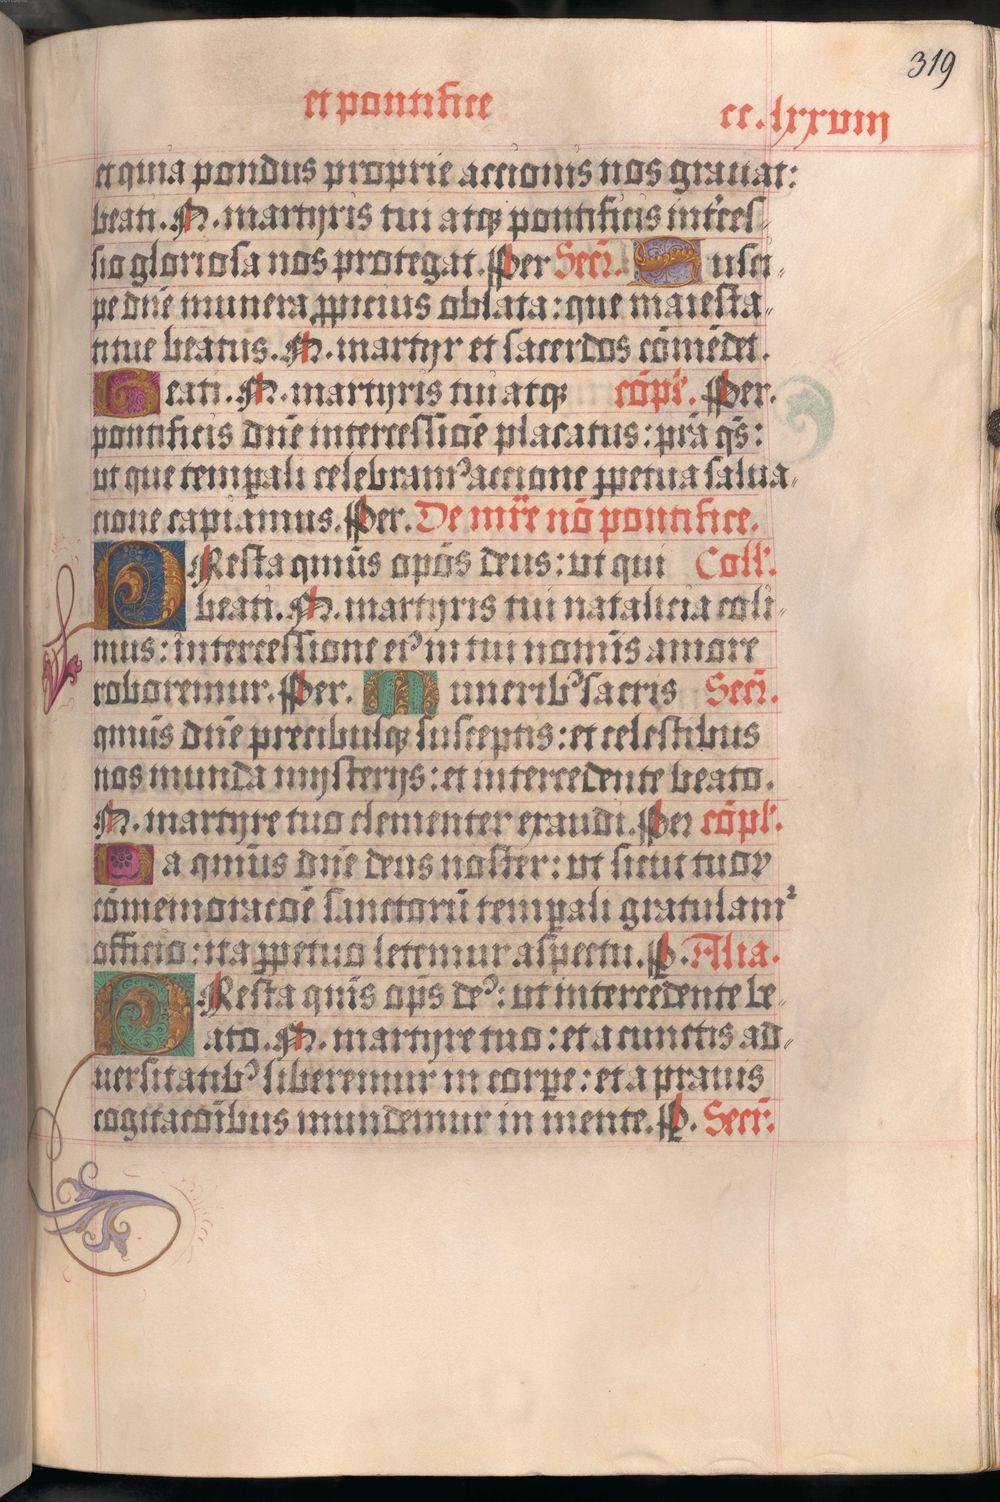 319
et pontifice
cc.lxxviij
et quia pondus proprie accionis nos grauat:
beati. N. martyris tui atqꝫ pontificis int̄ces⸗
sio gloriosa nos protegat. Per Secr̄. Susci⸗
pe dn̄e munera ꝓpicius oblata: que maiesta⸗
ti tue beatus. N. martyr et sacerdos cōmēdet.
Beati. N. martyris tui atqꝫ cōpl̄. Per.
pontificis dn̄e intercessiōe placatus: pr̄a qs̄:
ut que temꝑali celebramꝰ accione ꝑpetua salua⸗
cione capiamus. Per. De mr̄e nō pontifice.
PResta qm̄us opōs deus: ut qui Coll̄.
beati. N. martyris tui natalicia coli⸗
mus: intercessione eiꝰ in tui nomīs amore
roboremur. Per. Muneribꝰ sacris Secr̄.
qm̄us dn̄e precibusqꝫ susceptis: et celestibus
nos munda mysterijs: et intercedente beato.
N. martyre tuo clementer exaudi. Per cōpl̄.
Da qm̄us dn̄e deus noster: ut sicut tuoꝝ
cōmemoracōe sanctorū temꝑali gratulamᷣ
officio: ita ꝑpetuo letemur aspectu. P. Alia.
PResta qm̄s ops̄ deꝰ: ut intercedente be⸗
ato. N. martyre tuo: et a cunctis ad⸗
uersitatibꝰ liberemur in corpe: et a prauis
cogitacōibus mundemur in mente. P. Secr̄.